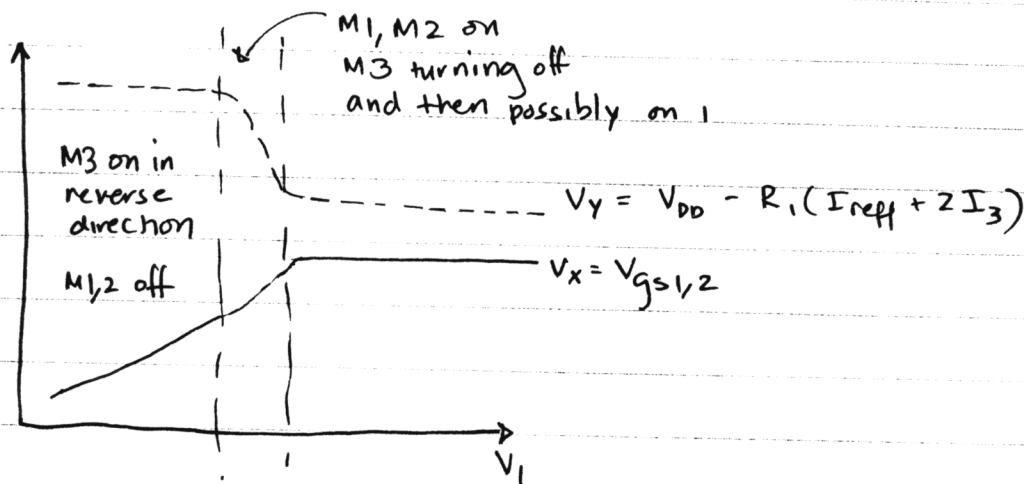 M1, M2 on
M3 turning off
and then possibly on 1
M3 on in
reverse
direction
M1,2 off
Vy = VDD - R1 (Ireff + 2 I3)
Vx = Vgs1,2
V1